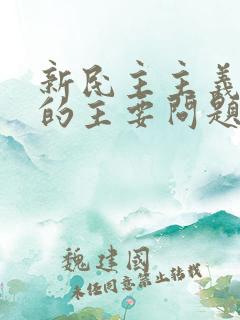 新民主主義
的主要問題
魏建國
未经同意禁止转载